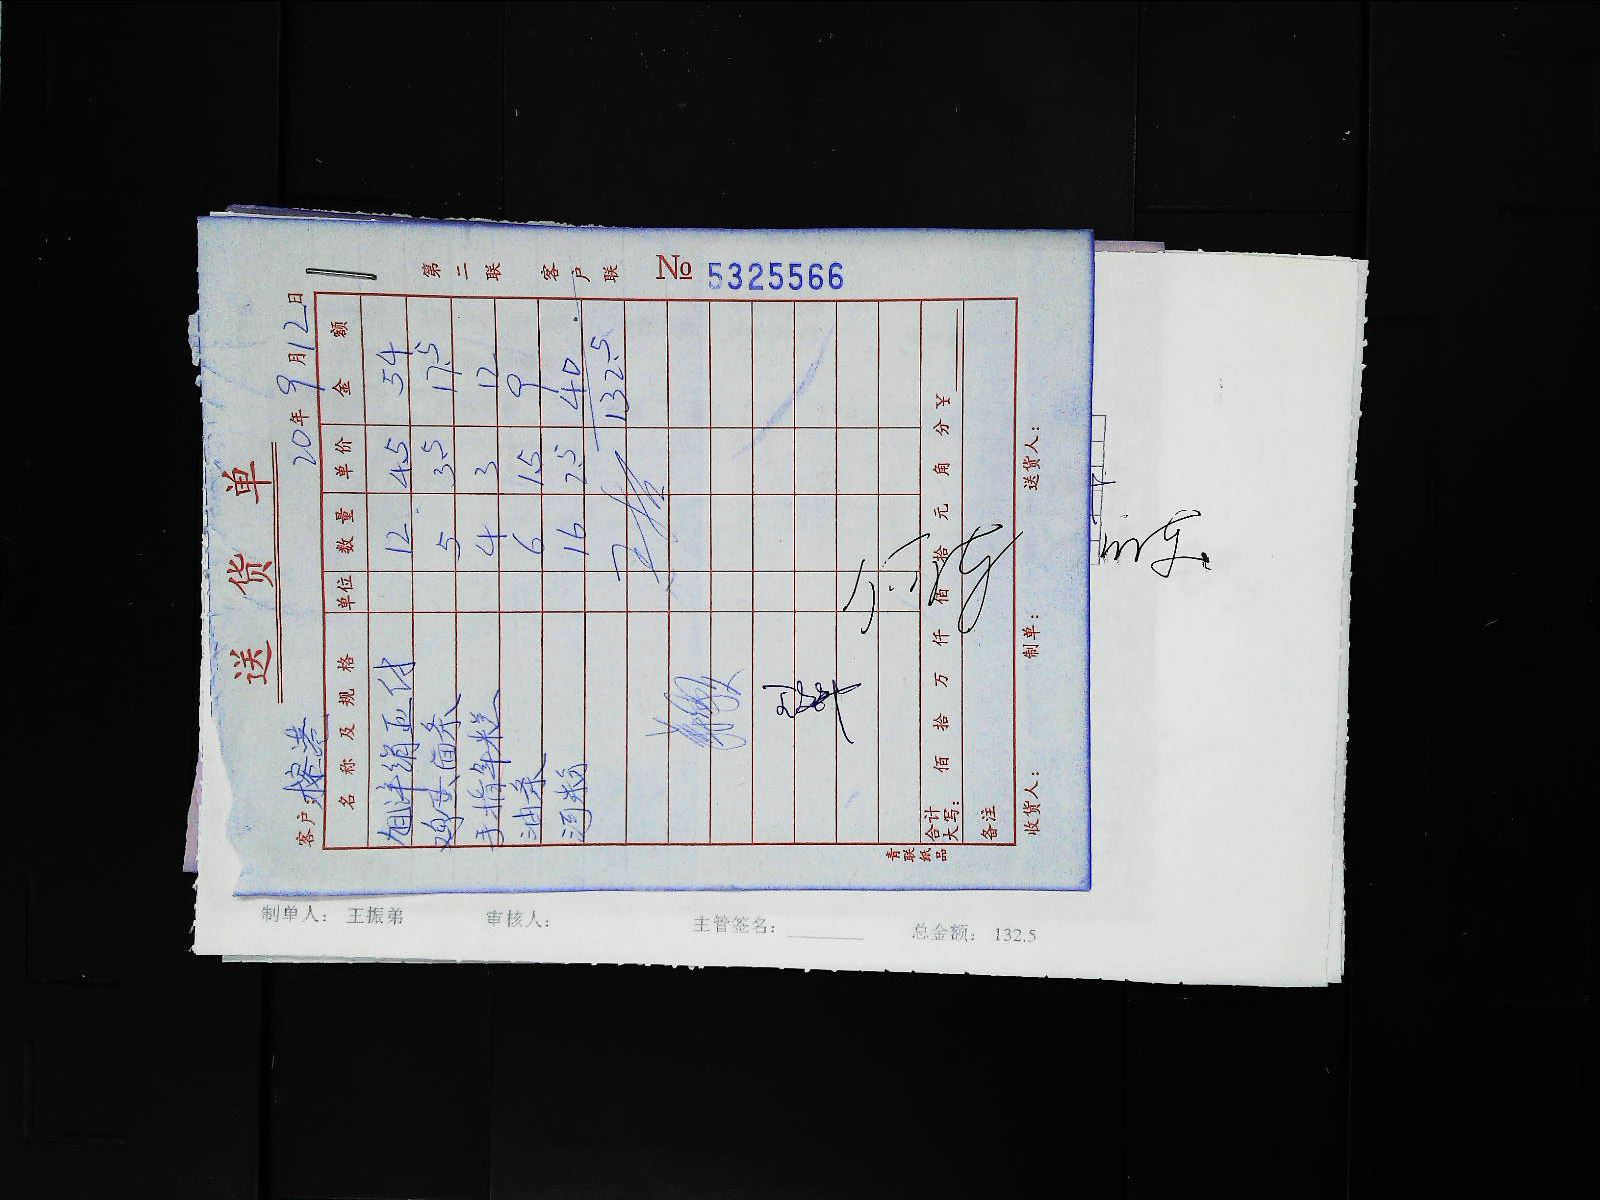 送 货 单
第二联 客户联
№ 5325566
客户
20年9月12日
名称及规格 单位 数量 单价 金额
12 4.5 54
鸡 面条 5 3.5 17.5
手指年糕 4 3 12
油条 6 1.5 9
河粉 16 2.5 40
132.5
合计大写: 佰 拾 万 仟 佰 拾 元 角 分 ¥
备注
收货人: 制单: 送货人:
青联纸品
制单人: 王振弟 审核人: 主管签名: 总金额: 132.5